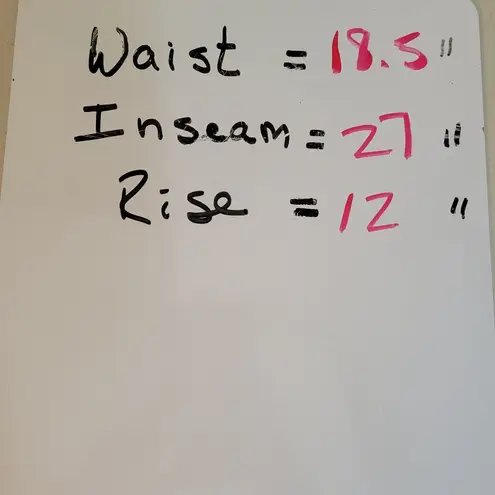 Waist = 18.5"
Inseam = 27"
Rise = 12"